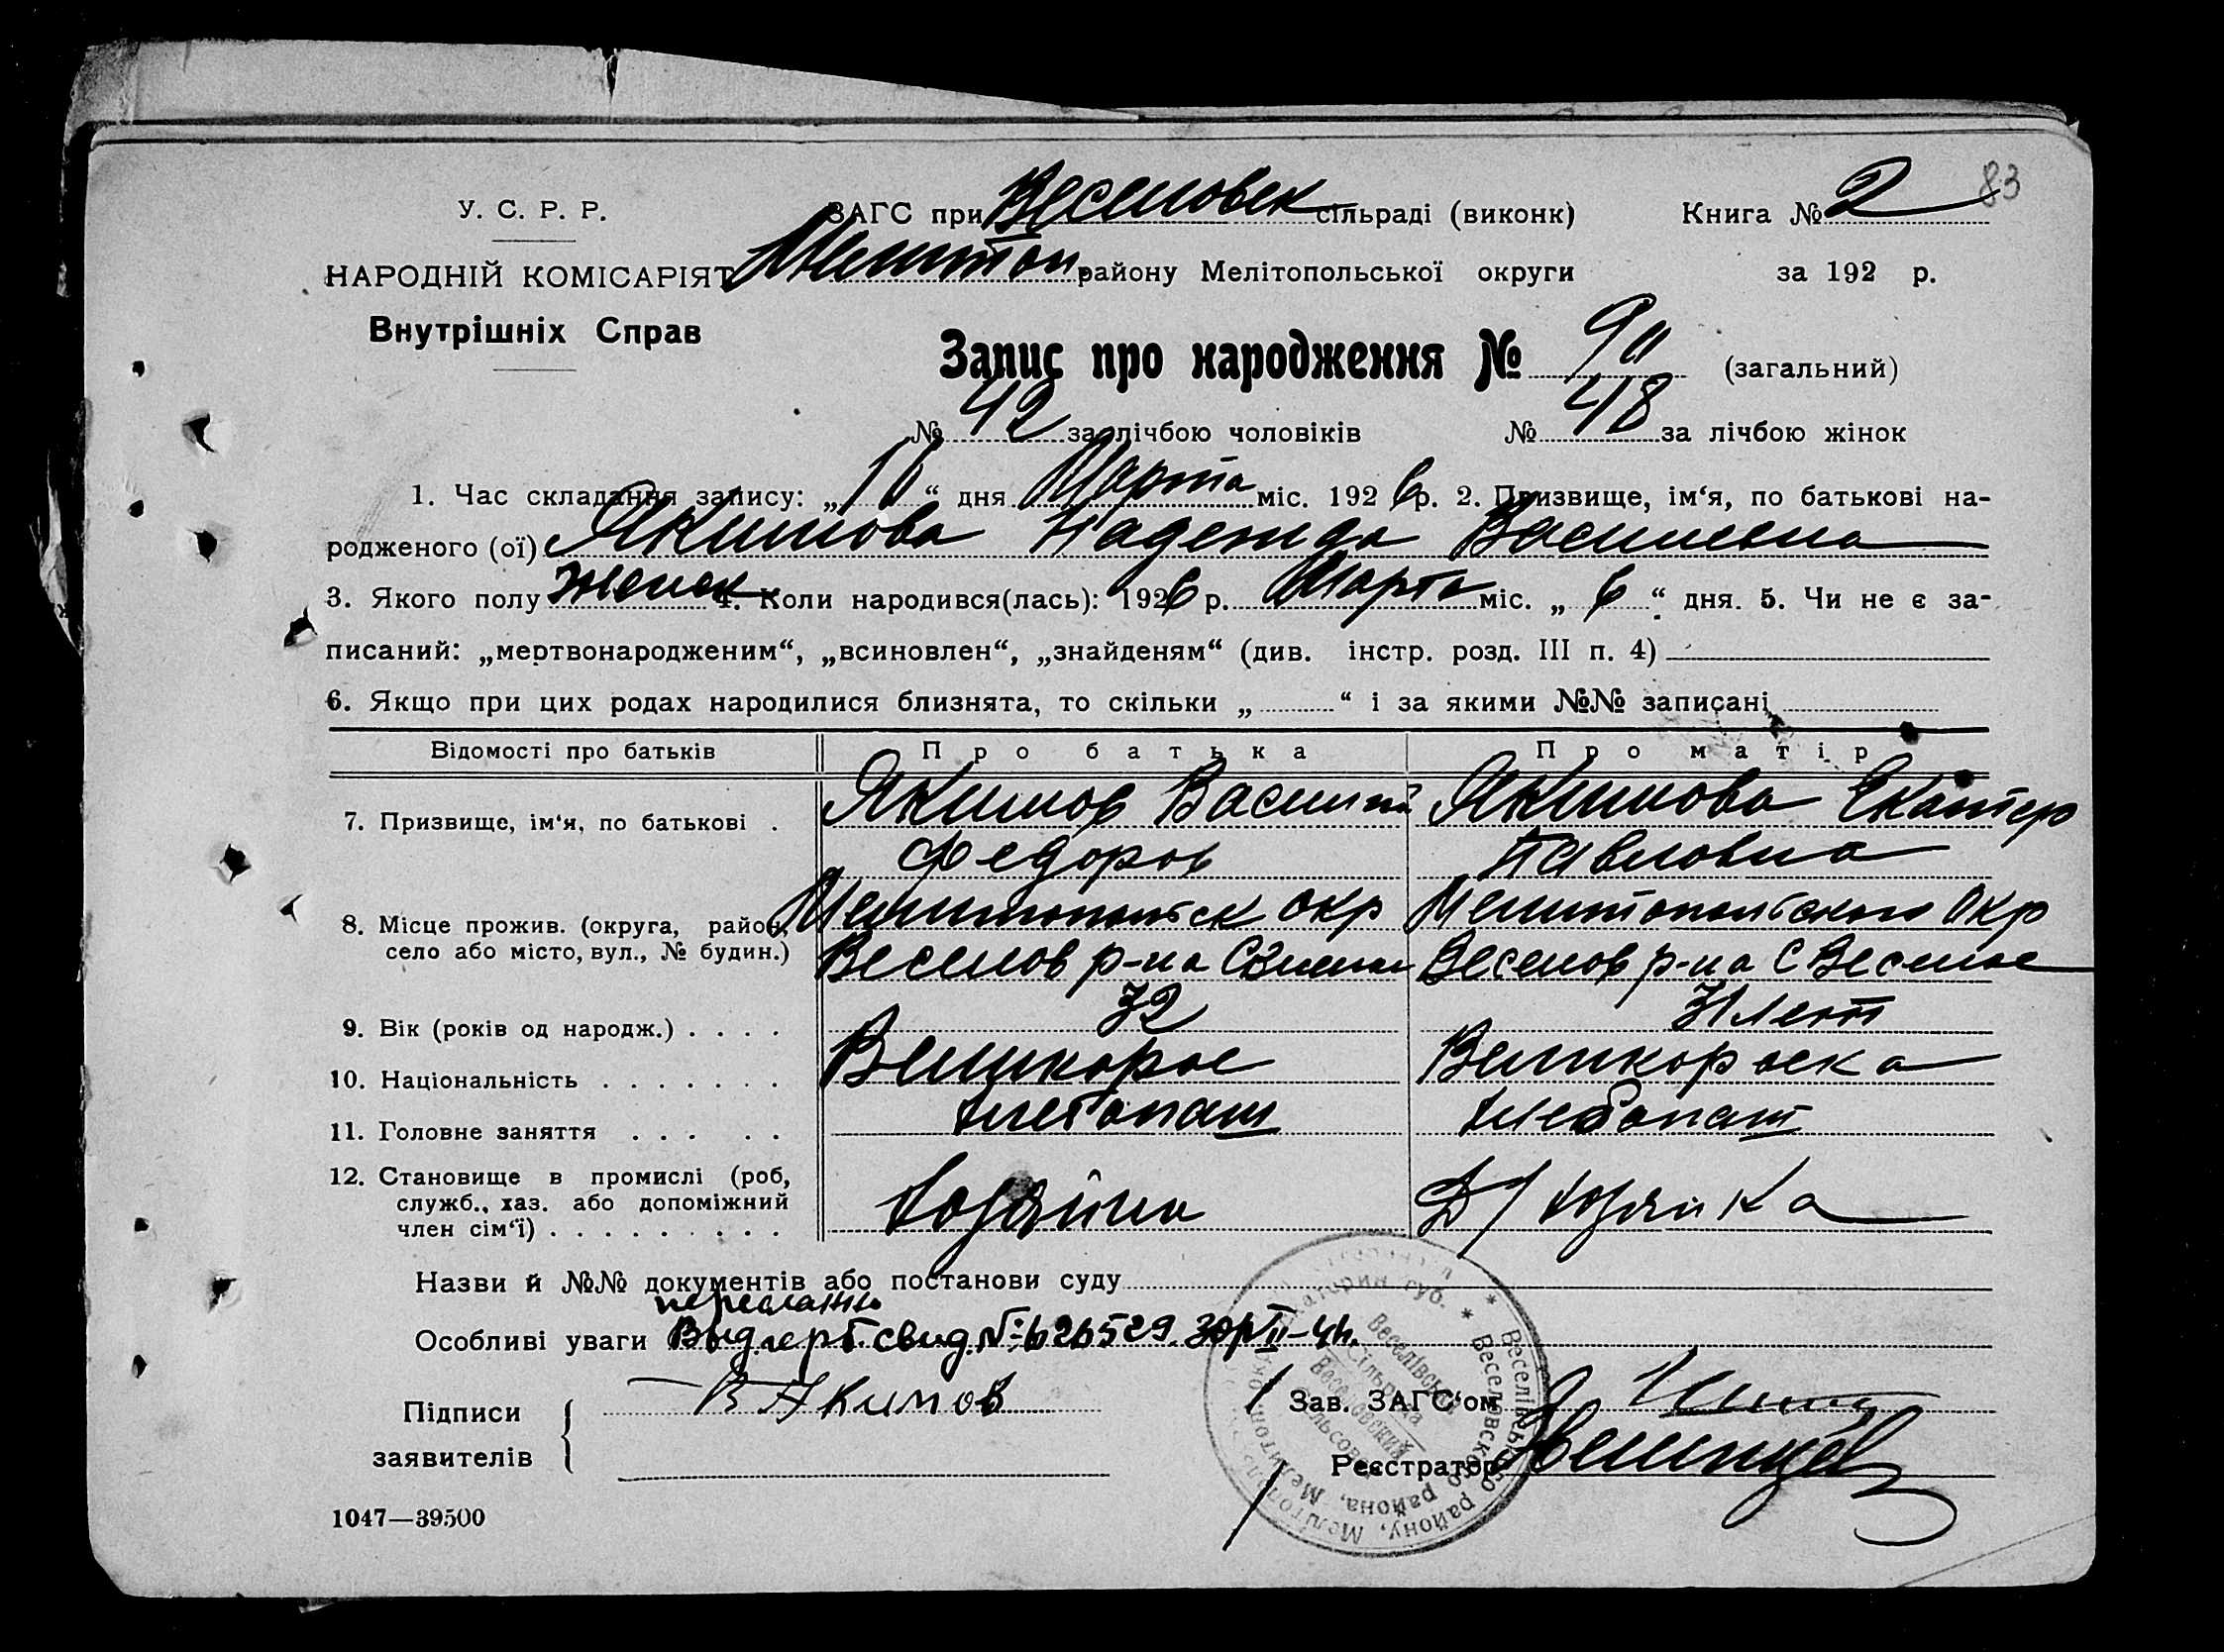 83
У. С. Р. Р.
ЗАГС при Веселовск сільраді (виконк)
Книга № 2
НАРОДНІЙ КОМІСАРІЯТ
Мелитоп. району Мелітопольської округи
за 192 р.
Внутрішніх Справ
Запис про народження № 90 (загальний)
№ 42 за лічбою чоловіків № 48 за лічбою жінок
1. Час складання запису: „ “ дня Марта міс. 1926 р. 2. Призвище, ім‘я, по батькові на-
родженого (ої) Якимова Надежда Василевна
3. Якого полу женск 4. Коли народився(лась): 1926 р. Марта міс. „ 6 “ дня. 5. Чи не є за-
писаний: „мертвонародженим“, „всиновлен“, „знайденям“ (див. інстр. розд. III п. 4)
6. Якщо при цих родах народилися близнята, то скільки „ “ і за якими №№ записані
Відомості про батьків Про батька Про матір
7. Призвище, ім‘я, по батькові . Якимов Василий Якимова Екатер
Федоров Павловна
8. Місце прожив. (округа, район, Мелитопольск окр Мелитопольского Окр
село або місто, вул., № будин.) Веселов р-на Веселов р-на С Веселое
9. Вік (років од народж.) . . . . 32 31 лет
10. Національність . . . . . . . Великорос Великороска
11. Головне заняття . . . . . хлебопаш хлебопаш
12. Становище в промислі (роб,
служб., хаз. або допоміжний
член сім‘ї) . . . . . . . . . Хозяйин Д/ хозяйка
Назви й №№ документів або постанови суду
Особливі уваги Выд. свид. №
Підписи заявителів В Якимов
Зав. ЗАГС‘ом
Реєстратор
1047—39500